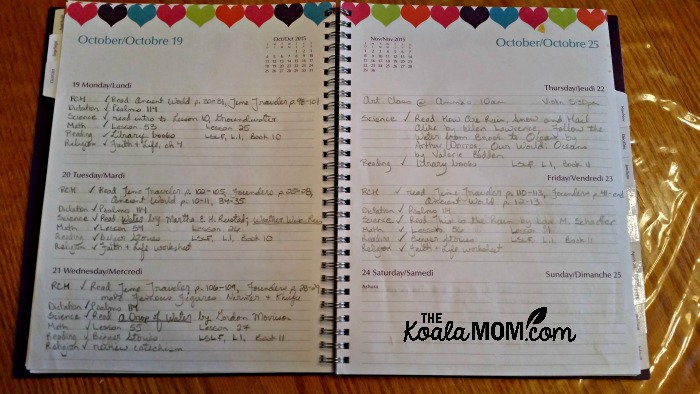 October/Octobre 19
Oct/Oct 2015
19 Monday/Lundi
PCH ✓ Read Ancient World p. 30-31, Time Traveler p. 98-101
Dictation ✓ Psalms 114
Science ✓ read intro to Lesson 10, Groundwater
Math ✓ Lesson 53 Lesson 25
Reading ✓ Library books LSLF, L1, Book 10
Religion ✓ Faith + Life, ch 4
20 Tuesday/Mardi
PCH ✓ Read Time Traveler p. 102-105, Founders p. 25-28,
Ancient World p. 10-11, 34-35
Dictation ✓ Psalms 114
Science ✓ Read Water by Martha E. H. Rustad; Weather Water
Math ✓ Lesson 54 Lesson 26
Reading ✓ Stories LSLF, L1, Book 10
Religion ✓ Faith + Life worksheet
21 Wednesday/Mercredi
PCH ✓ Read Time Traveler p. 106-109, Founders p. 28-29
make Famous Figures
Dictation ✓ Psalms 114
Science ✓ Read A Drop of Water by Gordon Morrison
Math ✓ Lesson 55 Lesson 27
Reading ✓ Stories LSLF, L1, Book 11
Religion ✓ review catechism
Nov/Nov 2015
October/Octobre 25
Thursday/Jeudi 22
Art Class @ 10am 5:30pm
Science ✓ Read How Are Rain, Snow and Hail
Alike by Ellen Lawrence, Follow the
Water from Brook to Ocean by
Arthur Dorros, Our World: Oceans
by Valerie Bodden
Reading ✓ Library books LSLF, L1, Book 11
Friday/Vendredi 23
PCH ✓ read Time Traveler p. 110-113, Founders p. 41-end
Ancient World p. 12-13
Dictation ✓ Psalms 114
Science ✓ Read This is the Rain by Lola M. Schaefer
Math ✓ Lesson 56
Reading ✓ Stories LSLF, L1, Book 11
Religion ✓ Faith + Life worksheet
24 Saturday/Samedi
Sunday/Dimanche 25
Ashura
THE
KoalaMOM.com